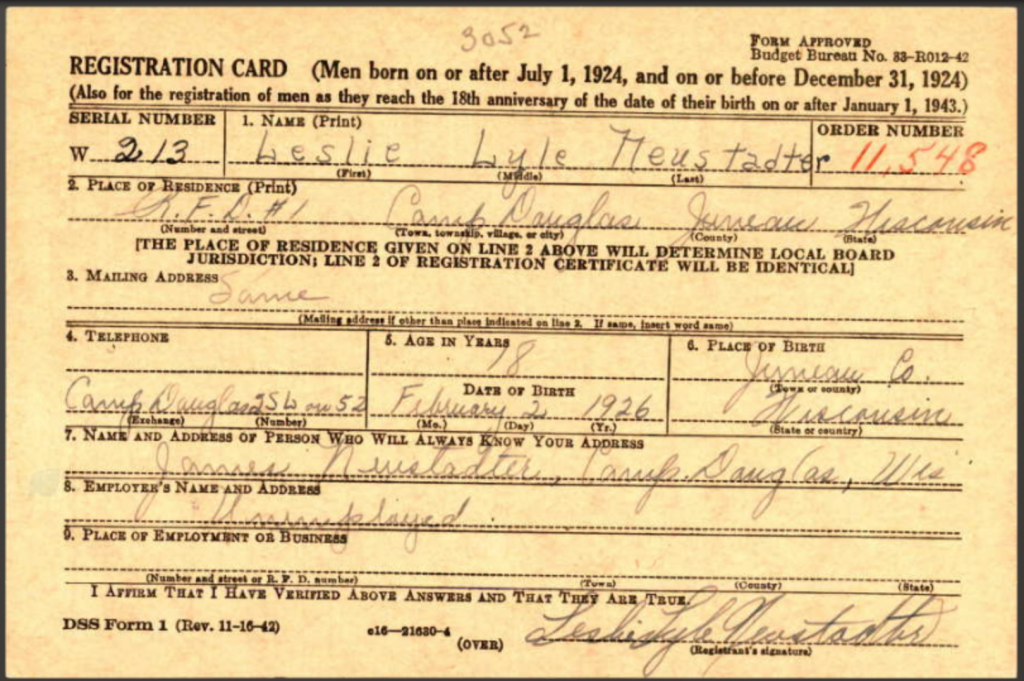 3052
FORM APPROVED
Budget Bureau No. 33-R012-42
REGISTRATION CARD (Men born on or after July 1, 1924, and on or before December 31, 1924)
(Also for the registration of men as they reach the 18th anniversary of the date of their birth on or after January 1, 1943.)
SERIAL NUMBER 1. NAME (Print) ORDER NUMBER
W 213 Leslie Lyle Neustadter 11,548
(First) (Middle) (Last)
2. PLACE OF RESIDENCE (Print)
R.F.D. #1 Camp Douglas Juneau Wisconsin
(Number and street) (Town, township, village, or city) (County) (State)
[THE PLACE OF RESIDENCE GIVEN ON LINE 2 ABOVE WILL DETERMINE LOCAL BOARD
JURISDICTION; LINE 2 OF REGISTRATION CERTIFICATE WILL BE IDENTICAL]
3. MAILING ADDRESS
Same
(Mailing address if other than place indicated on line 2. If same, insert word same)
4. TELEPHONE 5. AGE IN YEARS 6. PLACE OF BIRTH
18 Juneau Co.
DATE OF BIRTH (Town or county)
Camp Douglas 256 on 52 February 2 1926 Wisconsin
(Exchange) (Number) (Mo.) (Day) (Yr.) (State or country)
7. NAME AND ADDRESS OF PERSON WHO WILL ALWAYS KNOW YOUR ADDRESS
James Neustadter, Camp Douglas, Wis
8. EMPLOYER'S NAME AND ADDRESS
Unemployed
9. PLACE OF EMPLOYMENT OR BUSINESS
(Number and street or R. F. D. number) (Town) (County) (State)
I AFFIRM THAT I HAVE VERIFIED ABOVE ANSWERS AND THAT THEY ARE TRUE.
DSS Form 1 (Rev. 11-16-42) c16—21630-4 (OVER) Leslie Lyle Neustadter
(Registrant's signature)